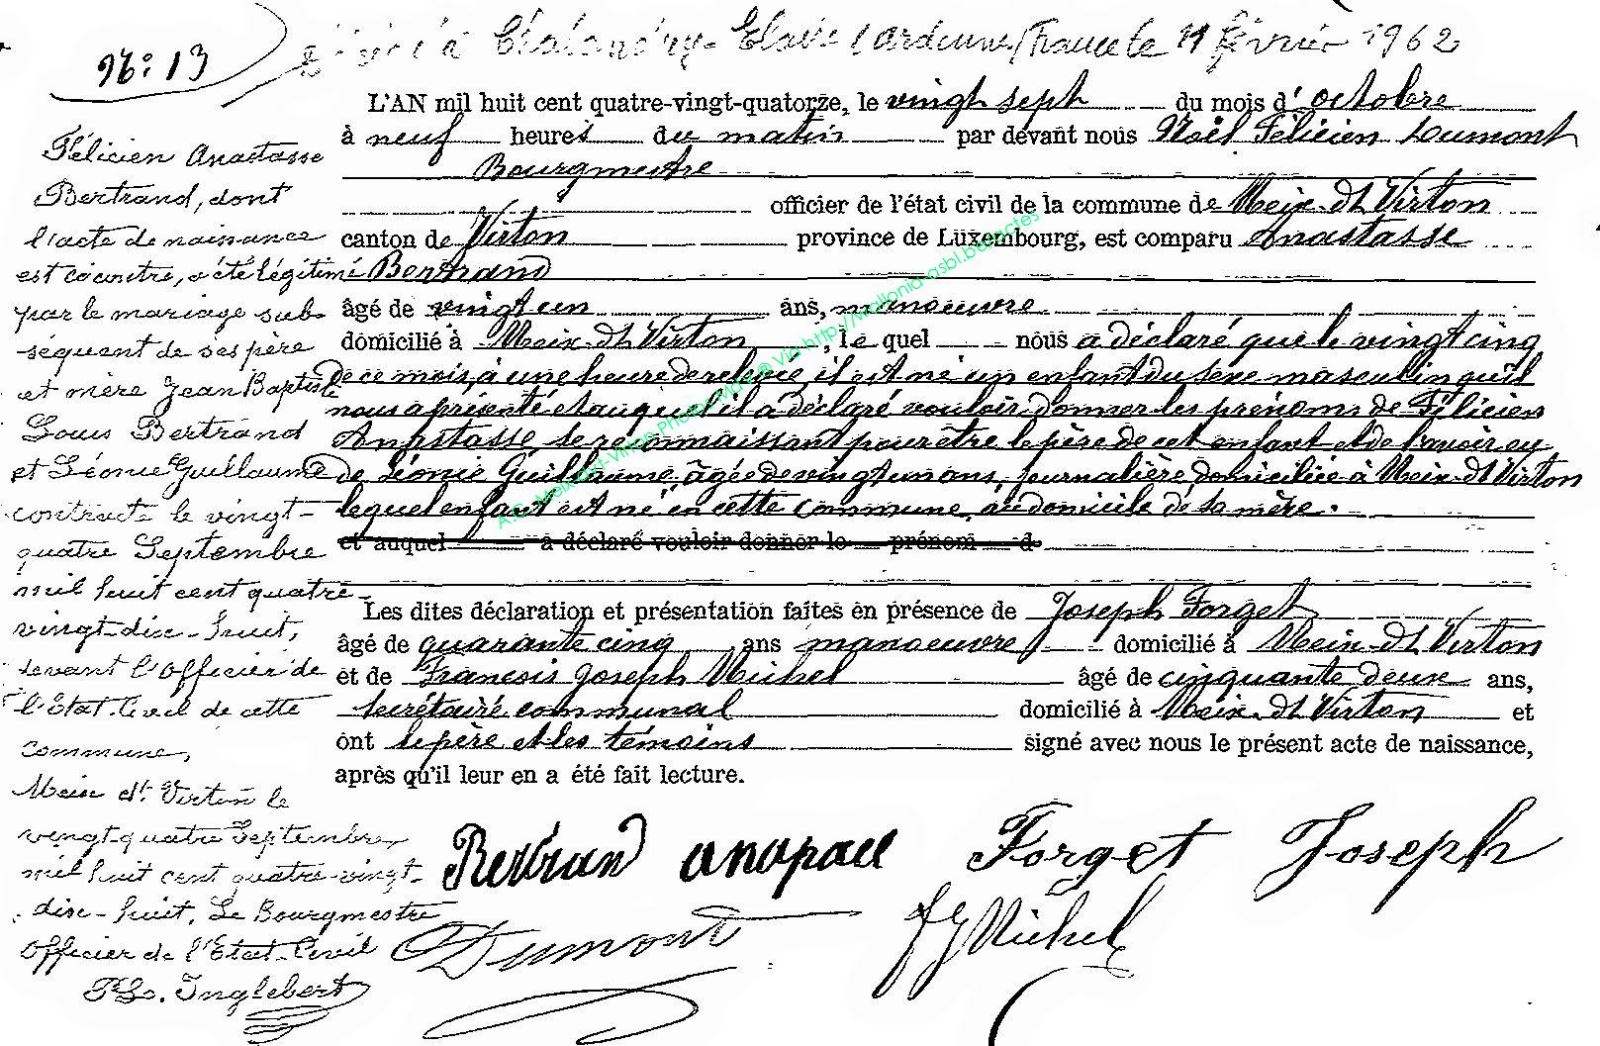 Décédé à Chalandry-Elaire (Ardennes) France le 11 février 1962
N°: 13
L'AN mil huit cent quatre-vingt-quatorze, le vingt sept du mois d'octobre
à neuf heures du matin par devant nous Noël Félicien Dumont
Bourgmestre
officier de l'état civil de la commune de Meix-dt Virton
canton de Virton province de Luxembourg, est comparu Anastasse
Bertrand
âgé de vingt un ans, manoeuvre
domicilié à Meix-dt Virton, le quel nous a déclaré que le vingt cinq
de ce mois, à une heure de relevée, il est né un enfant du sexe masculin qu'il
nous a présenté et auquel il a déclaré vouloir donner les prénoms de Félicien
Anastasse, se reconnaissant pour être le père de cet enfant et de l'avoir eu
de Léonie Guillaume, âgée de vingt un ans, journalière domiciliée à Meix-dt Virton
lequel enfant est né en cette commune, au domicile de sa mère.
et auquel a déclaré vouloir donner le prénom d
Les dites déclaration et présentation faites en présence de Joseph Forget
âgé de quarante cinq ans manoeuvre domicilié à Meix-dt Virton
et de Francois Joseph Michel âgé de cinquante deux ans,
secrétaire communal domicilié à Meix-dt Virton et
ont le père et les témoins signé avec nous le présent acte de naissance,
après qu'il leur en a été fait lecture.
Bertrand Forget Joseph
Dumont FJ Michel
Félicien Anastasse
Bertrand, dont
l'acte de naissance
est ci contre, a été légitimé
par le mariage sub-
séquent de ses père
et mère Jean Baptiste
Louis Bertrand
et Léonie Guillaume
contracté le vingt-
quatre Septembre
mil huit cent quatre-
vingt-dix-huit,
devant l'Officier de
l'Etat-Civil de cette
commune,
Meix dt Virton le
vingt quatre Septembre
mil huit cent quatre-vingt-
dix-huit, Le Bourgmestre
Officier de l'Etat-Civil
Inglebert